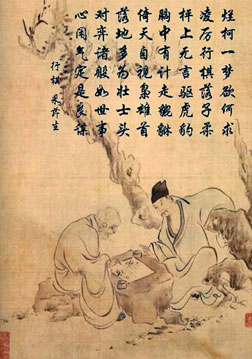 烂柯一梦欲何求
凌石行棋落子柔
枰上无言驱虎豹
胸中有计走貔貅
倚天自视枭雄首
落地多为壮士头
对弈诸般如世事
心闲气定是良谋
行棋